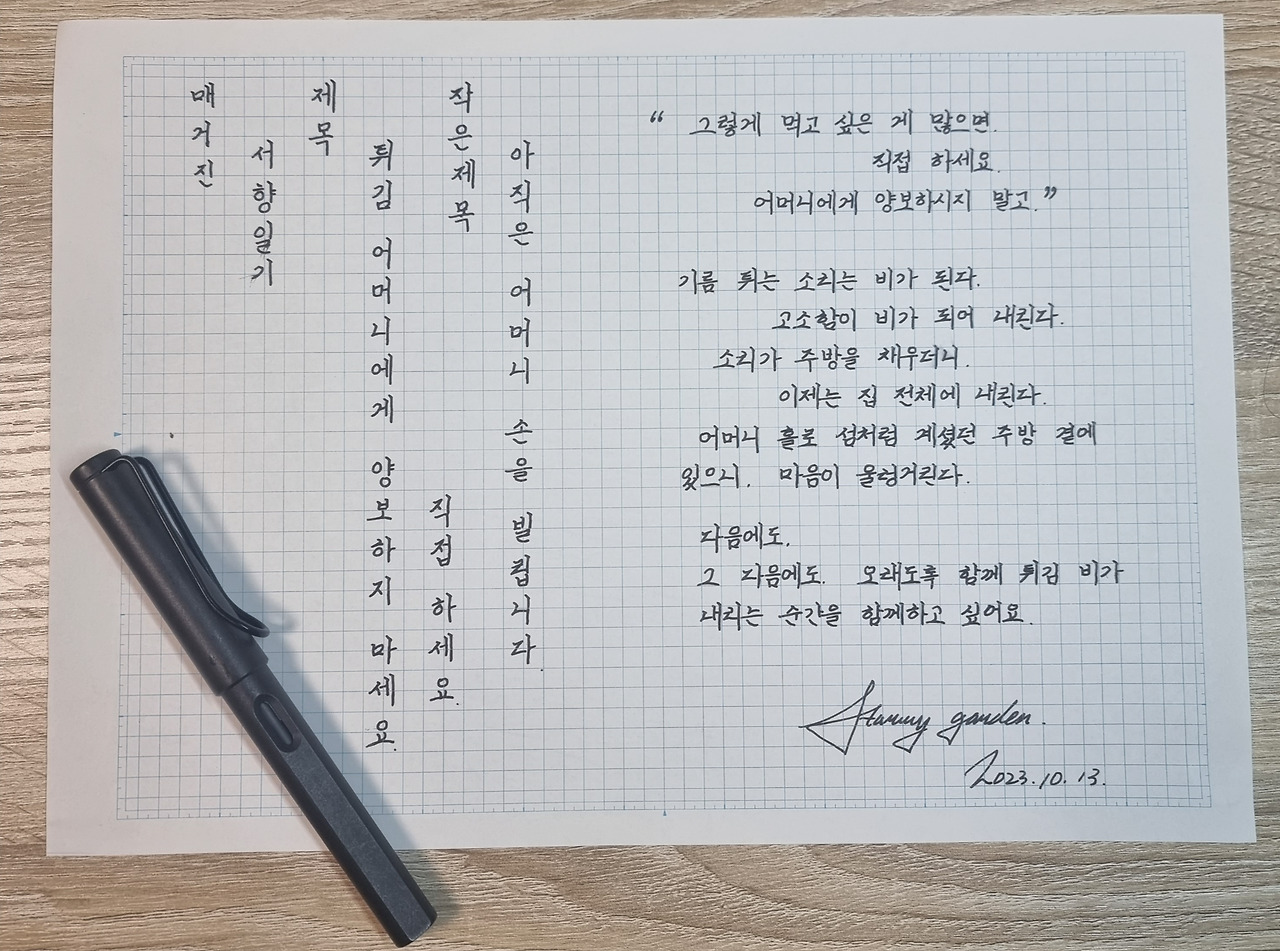 매거진
서향일기
제목
튀김 어머니에게 양보하지 마세요.
직접 하세요.
작은제목
아직은 어머니 손을 빌립니다.
“ 그렇게 먹고 싶은 게 많으면.
직접 하세요.
어머니에게 양보하시지 말고.”
기름 튀는 소리는 비가 된다.
고소함이 비가 되어 내린다.
소리가 주방을 채우더니.
이제는 집 전체에 내린다.
어머니 홀로 섬처럼 계셨던 주방 곁에
있으니. 마음이 울렁거린다.
다음에도.
그 다음에도. 오래도록 함께 튀김 비가
내리는 순간을 함께하고 싶어요.
Starry garden.
2023.10.13.